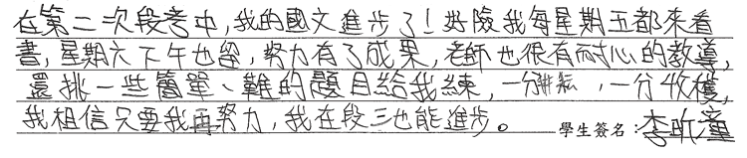 在第二次段考中,我的國文進步了!好險我每星期五都來看
書,星期六下午也留,努力有了成果,老師也很有耐心的教導,
還挑一些簡單、難的題目給我練,一分耕耘,一分收穫,
我相信只要我再努力,我在段三也能進步。 學生簽名:李昕潼